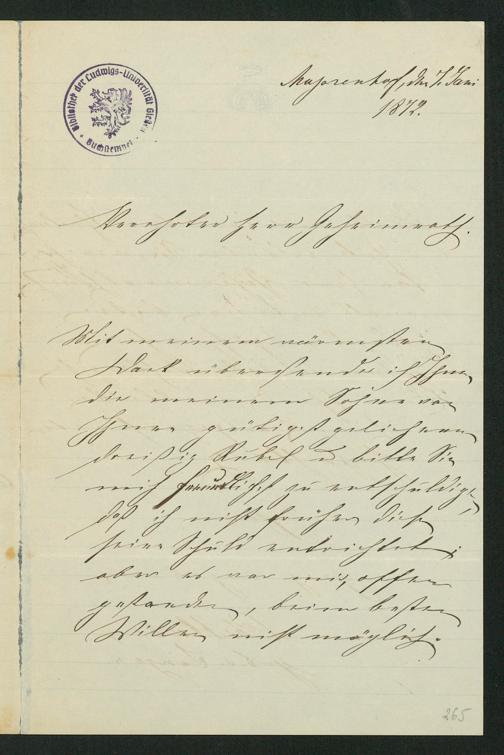 Bibliothek der Ludwigs-Universität Gießen
Buchstempel
Majorenhof, den 7. Juni
1872.
Verehrter Herr Geheimrath.
Mit meinem wärmsten
Dank übersende ich Ihnen
die meinem Sohne von
Ihnen gütigst geliehenen
dreißig Rubel u bitte Sie
mich freundlichst zu entschuldigen,
daß ich nicht früher diese
seine Schuld entrichtet;
aber es war mir, offen
gestanden, beim besten
Willen nicht möglich.
265